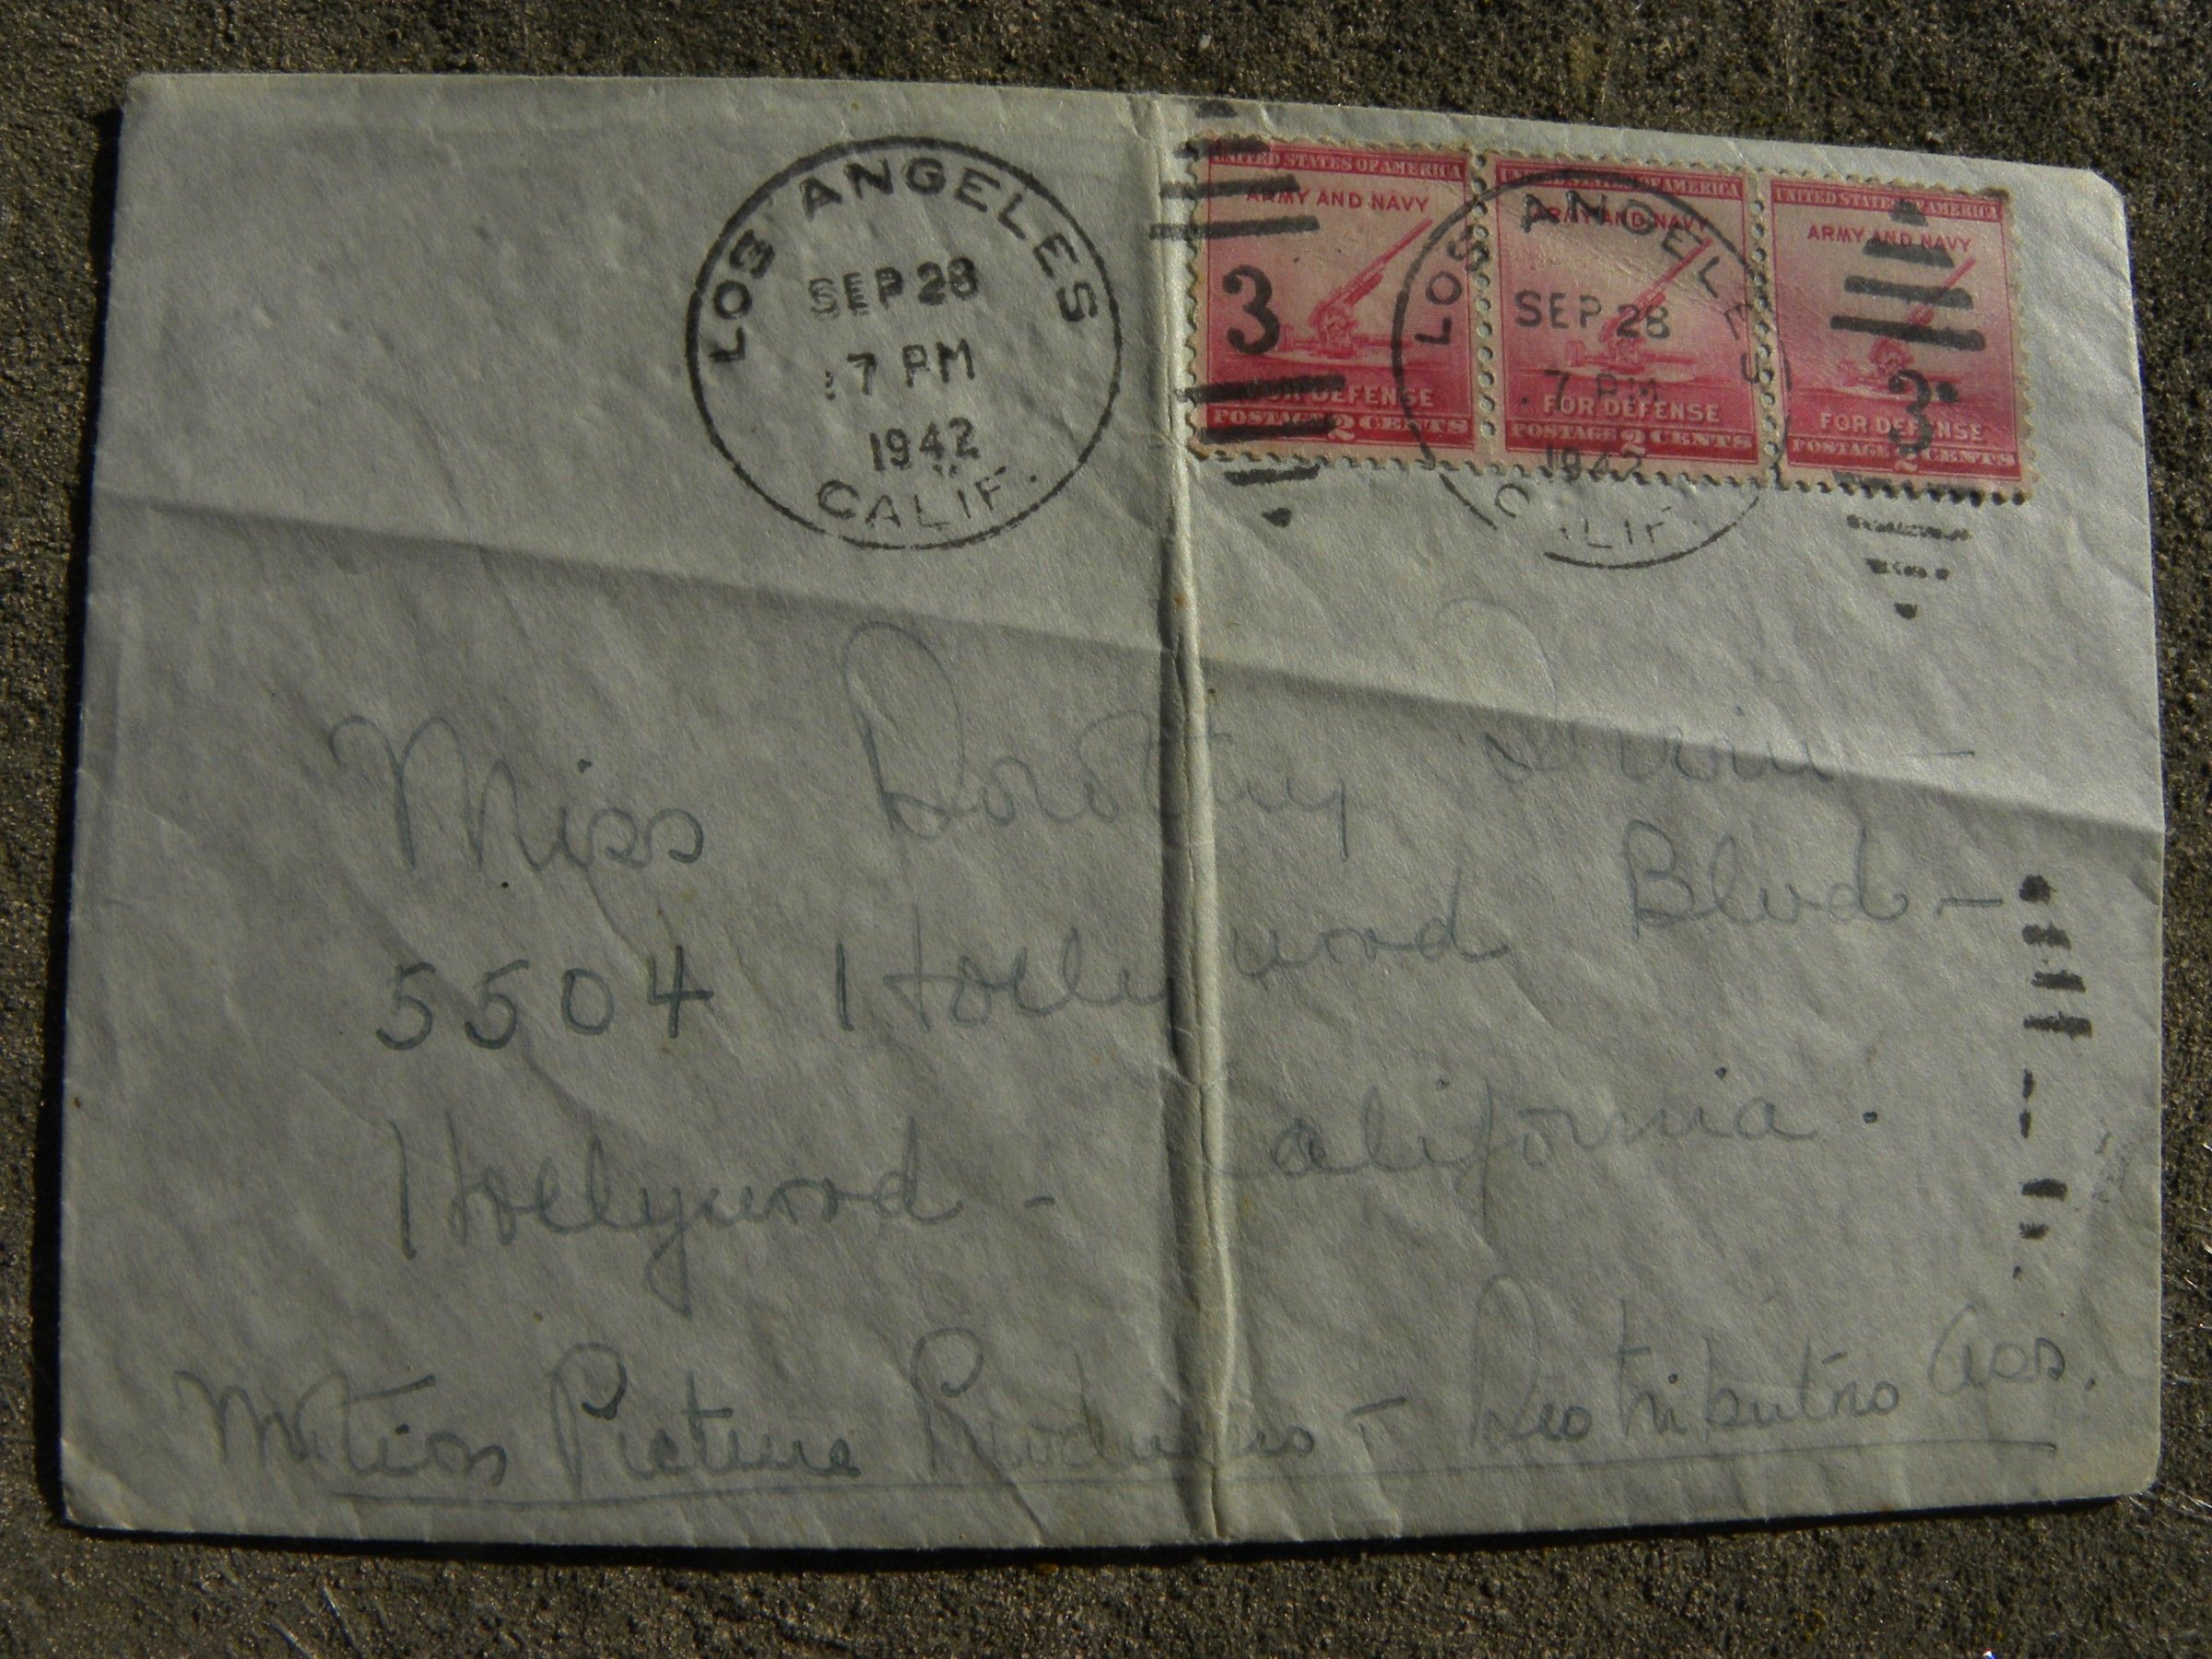 LOS ANGELES
SEP 28
7 PM
1942
CALIF.
UNITED STATES OF AMERICA
ARMY AND NAVY
3
FOR DEFENSE
POSTAGE 2 CENTS
UNITED STATES OF AMERICA
ARMY AND NAVY
FOR DEFENSE
POSTAGE 2 CENTS
LOS ANGELES
SEP 28
7 PM
1942
CALIF.
UNITED STATES OF AMERICA
ARMY AND NAVY
3
FOR DEFENSE
POSTAGE 2 CENTS
Miss Dorothy
5504 Hollywood Blvd -
Hollywood - California.
Motion Picture Producers + Distributors Ass.